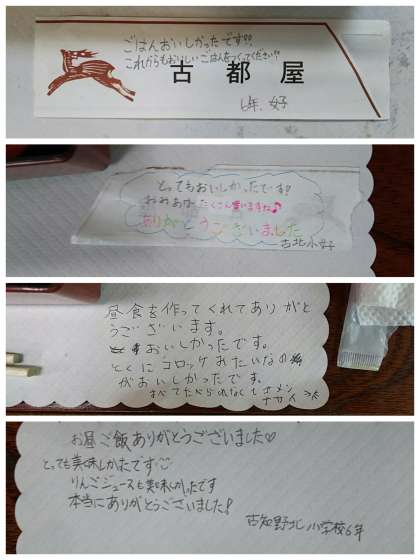 ごはんおいしかったです!!
これからもおいしいごはんをつくってください!!
古都屋
6年、女子
とってもおいしかったです!
たくさん買いますね♪
ありがとうございました
古北小女子
昼食を作ってくれてありがと
うございます。
おいしかったです。
とくにコロッケみたいなの
がおいしかったです。
お昼ご飯ありがとうございました♡
とっても美味しかたです
りんごジュースも美味しかったです
本当にありがとうございました!
古知野北小学校6年